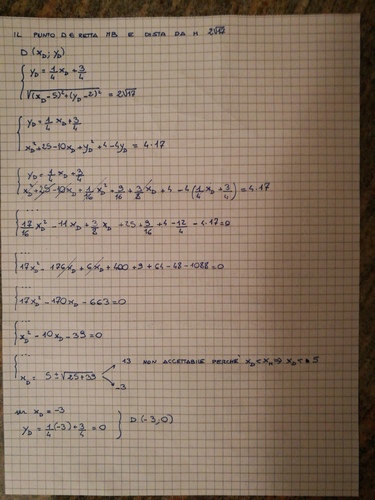 IL PUNTO D È RETTA MB E DISTA DA M 2√17
D (x_D; y_D)
{ y_D = 1/4 x_D + 3/4
√(x_D - 5)² + (y_D - 2)² = 2√17
{ y_D = 1/4 x_D + 3/4
x_D² + 25 - 10x_D + y_D² + 4 - 4y_D = 4·17
{ y_D = 1/4 x_D + 3/4
x_D² + 25 - 10x_D + 1/16 x_D² + 9/16 + 3/8 x_D + 4 - 4(1/4 x_D + 3/4) = 4·17
{ ...
17/16 x_D² - 11x_D + 3/8 x_D + 25 + 9/16 + 4 - 12/4 - 4·17 = 0
{ ...
17x_D² - 176x_D + 6x_D + 400 + 9 + 64 - 48 - 1088 = 0
{ ...
17x_D² - 170x_D - 663 = 0
{ ...
x_D² - 10x_D - 39 = 0
{ ...
x_D = 5 ± √25+39
13 NON ACCETTABILE PERCHÉ x_D < x_M ⇒ x_D < 5
-3
x_D = -3
y_D = 1/4 (-3) + 3/4 = 0 } D (-3; 0)